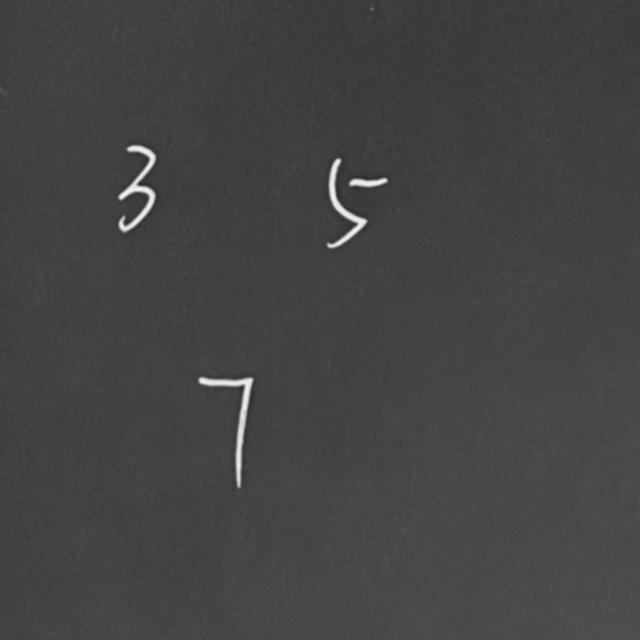 3 5
7